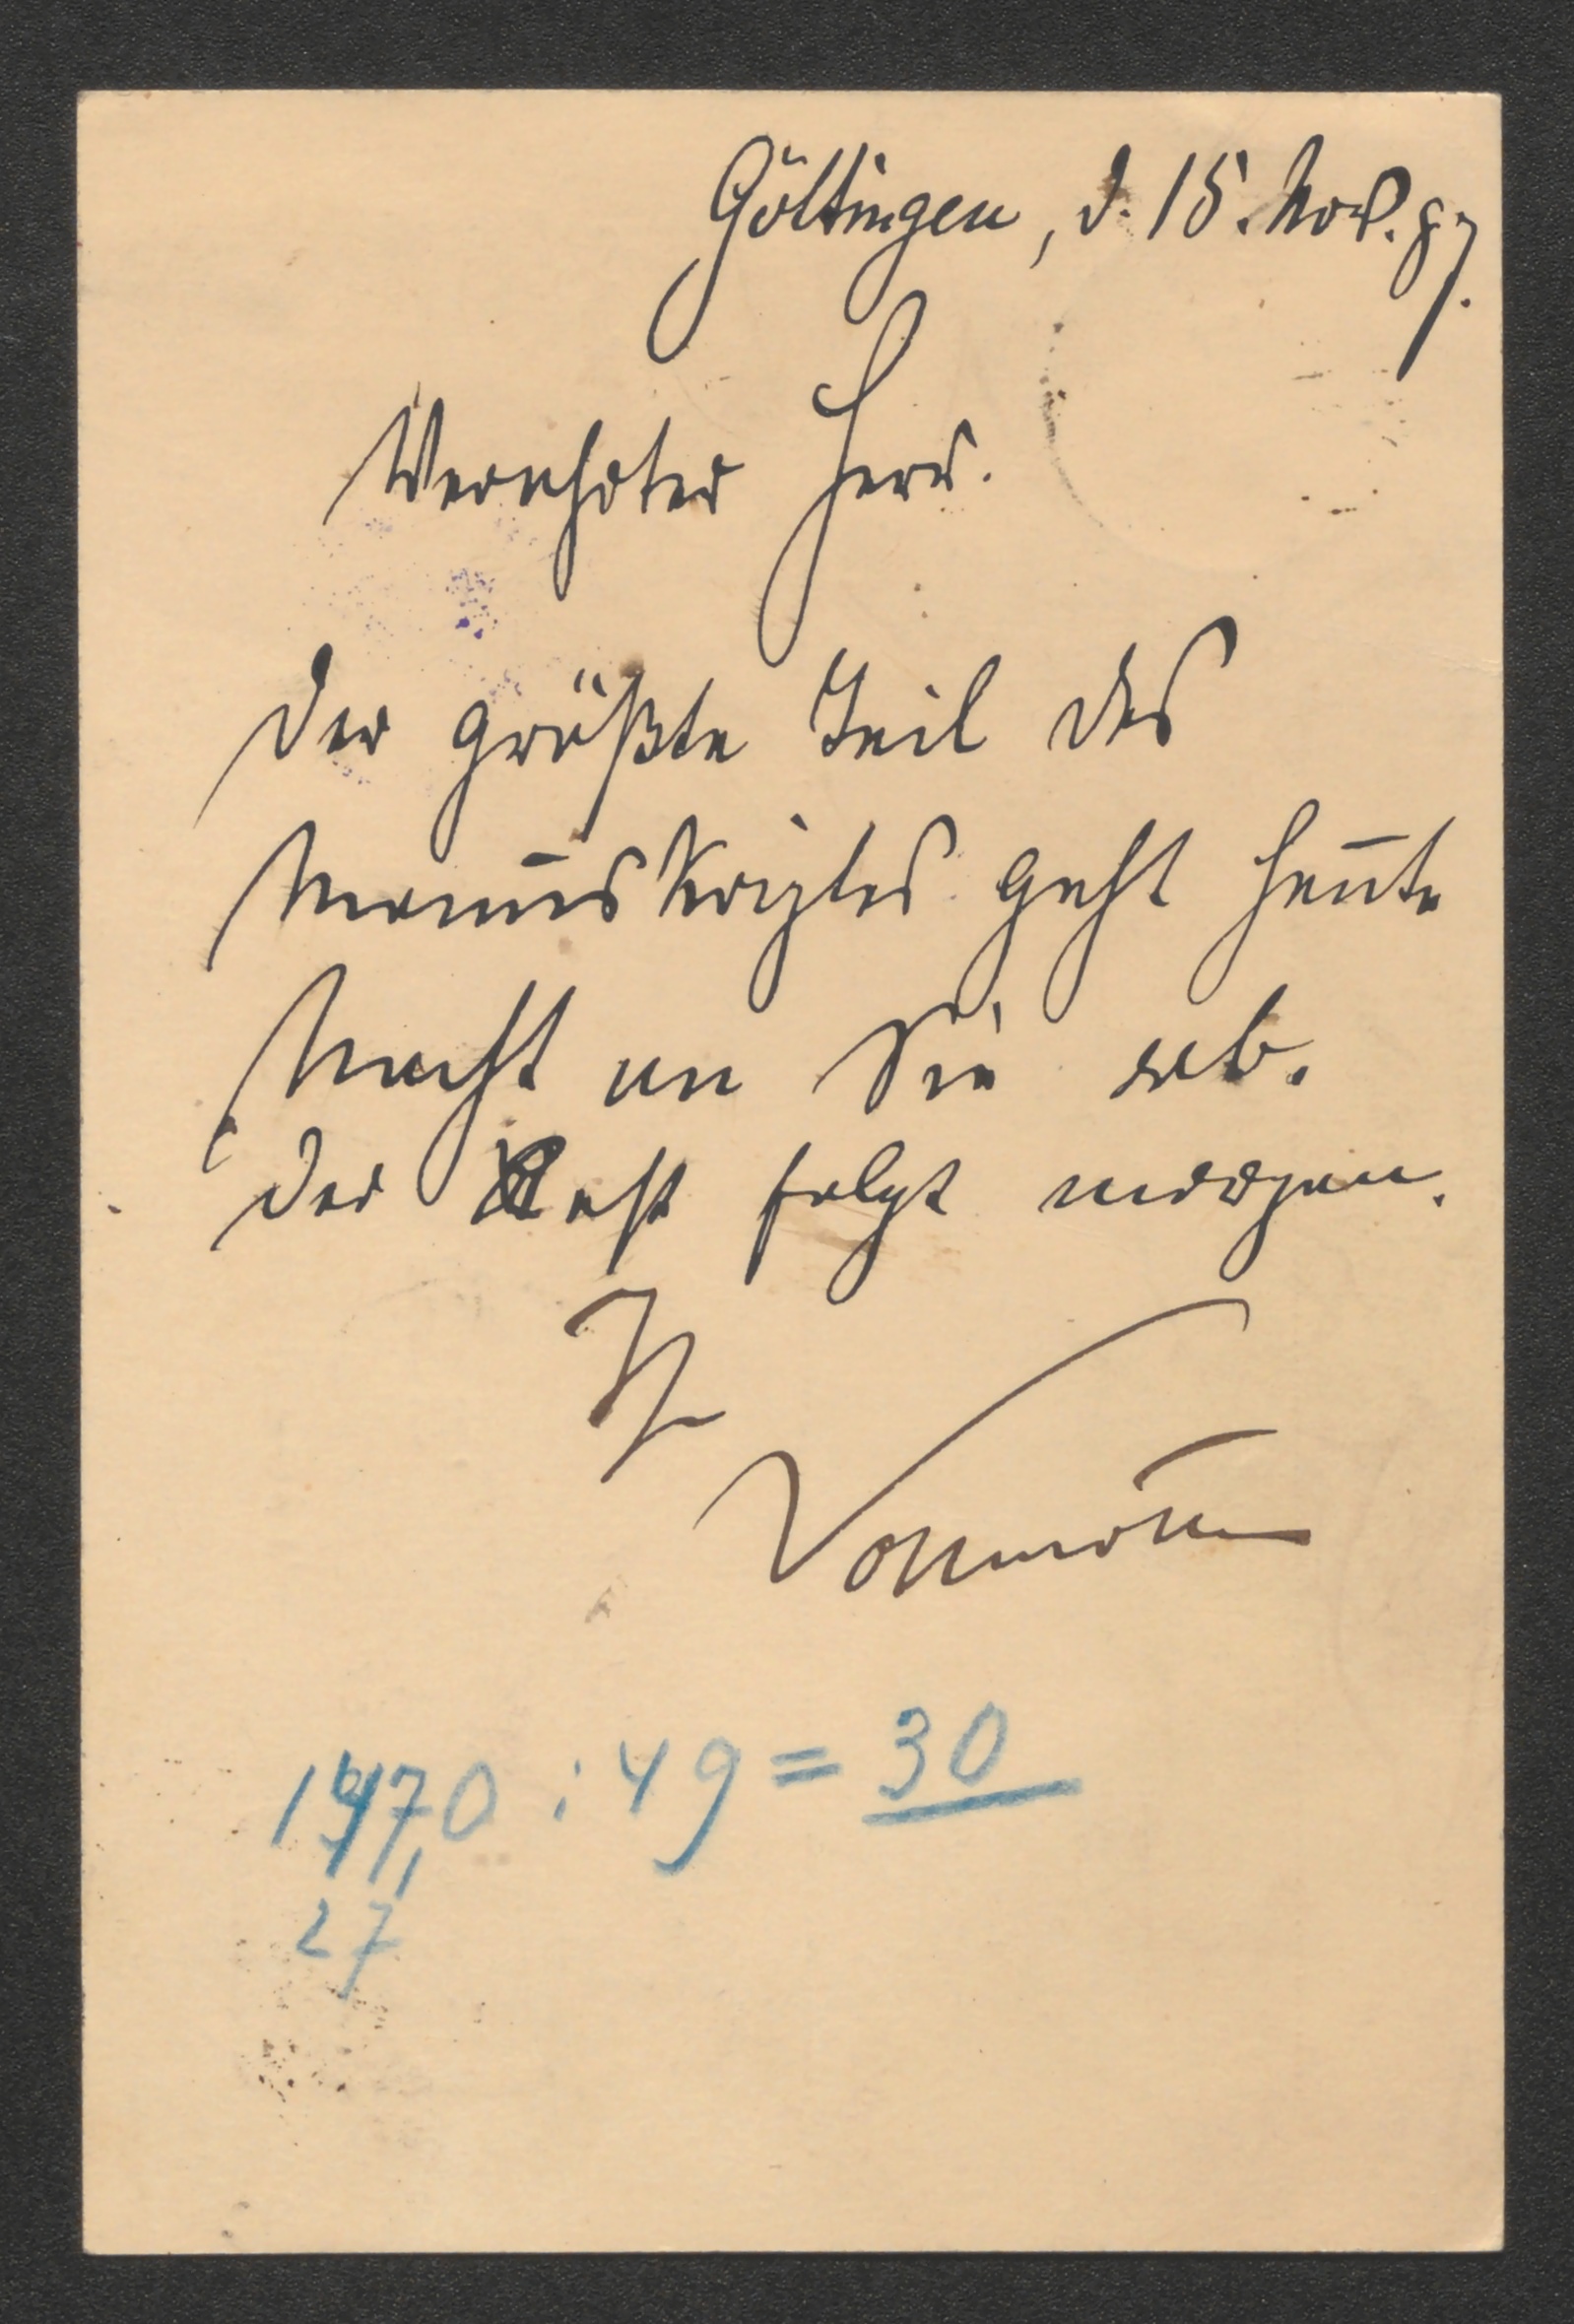 Göttingen, d. 15. Nov. 87.
Verehrter Herr.
der größte Teil des
Manuskriptes geht heute
Nacht an Sie ab.
der Rest folgt morgen.
Ihr
1470 : 49 = 30
27